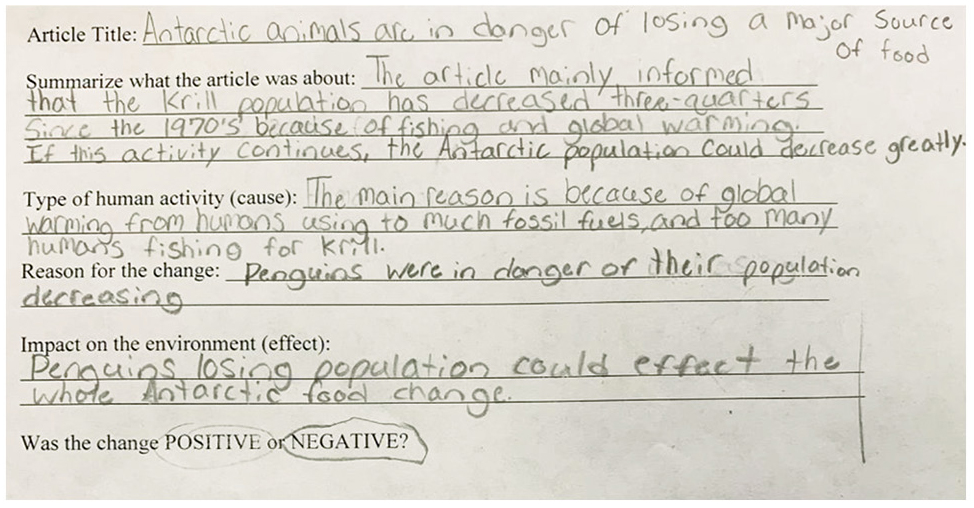 Article Title: Antarctic animals are in danger of losing a major source
of food
Summarize what the article was about: The article mainly informed
that the Krill population has decreased three-quarters
Since the 1970's because of fishing and global warming.
If this activity continues, the Antarctic population could decrease greatly.
Type of human activity (cause): The main reason is because of global
warming from humans using to much fossil fuels, and too many
humans fishing for krill.
Reason for the change: Penguins were in danger of their population
decreasing
Impact on the environment (effect):
Penguins losing population could effect the
whole Antarctic food change.
Was the change POSITIVE or NEGATIVE?